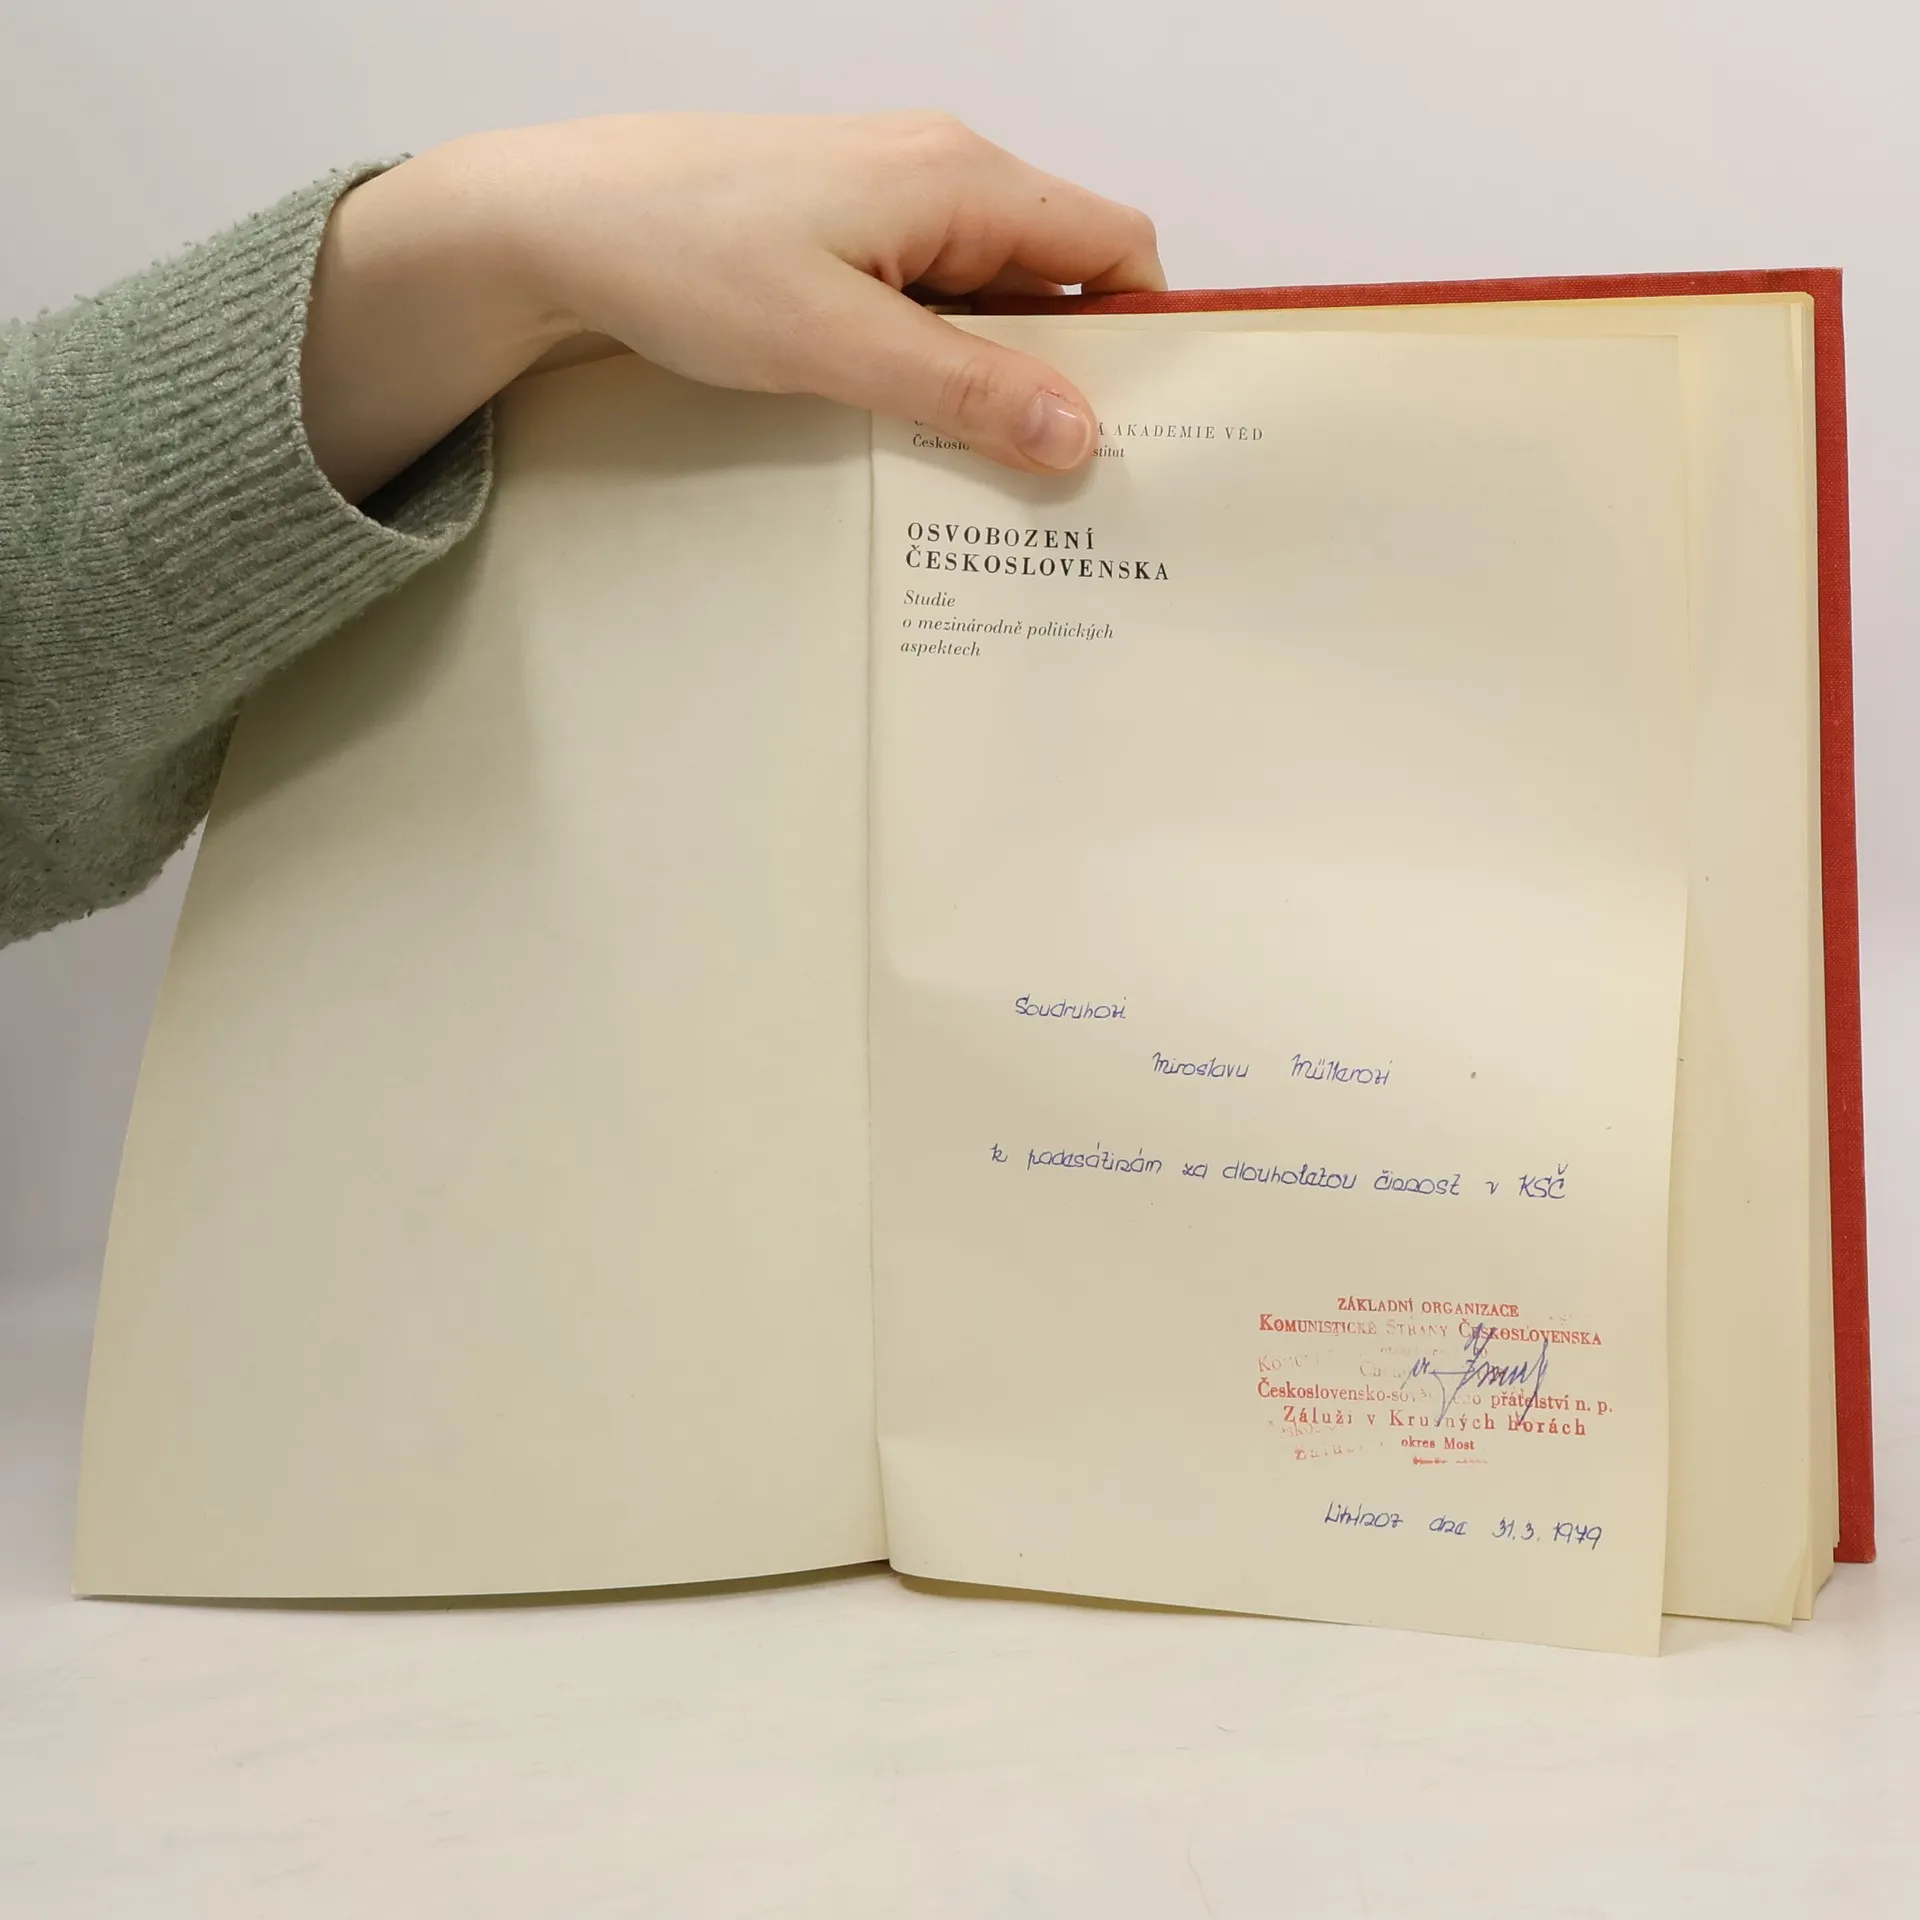 Á AKADEMIE VĚD
Českoslo stitut
OSVOBOZENÍ
ČESKOSLOVENSKA
Studie
o mezinárodně politických
aspektech
Soudruhovi
Miroslavu Müllerovi
k padesátinám za dlouholetou činnost v KSČ
ZÁKLADNÍ ORGANIZACE
KOMUNISTICKÉ STRANY ČESKOSLOVENSKA
Československo-so přátelství n. p.
Záluží v Krušných horách
okres Most
Litvínov dne 31.3. 1979